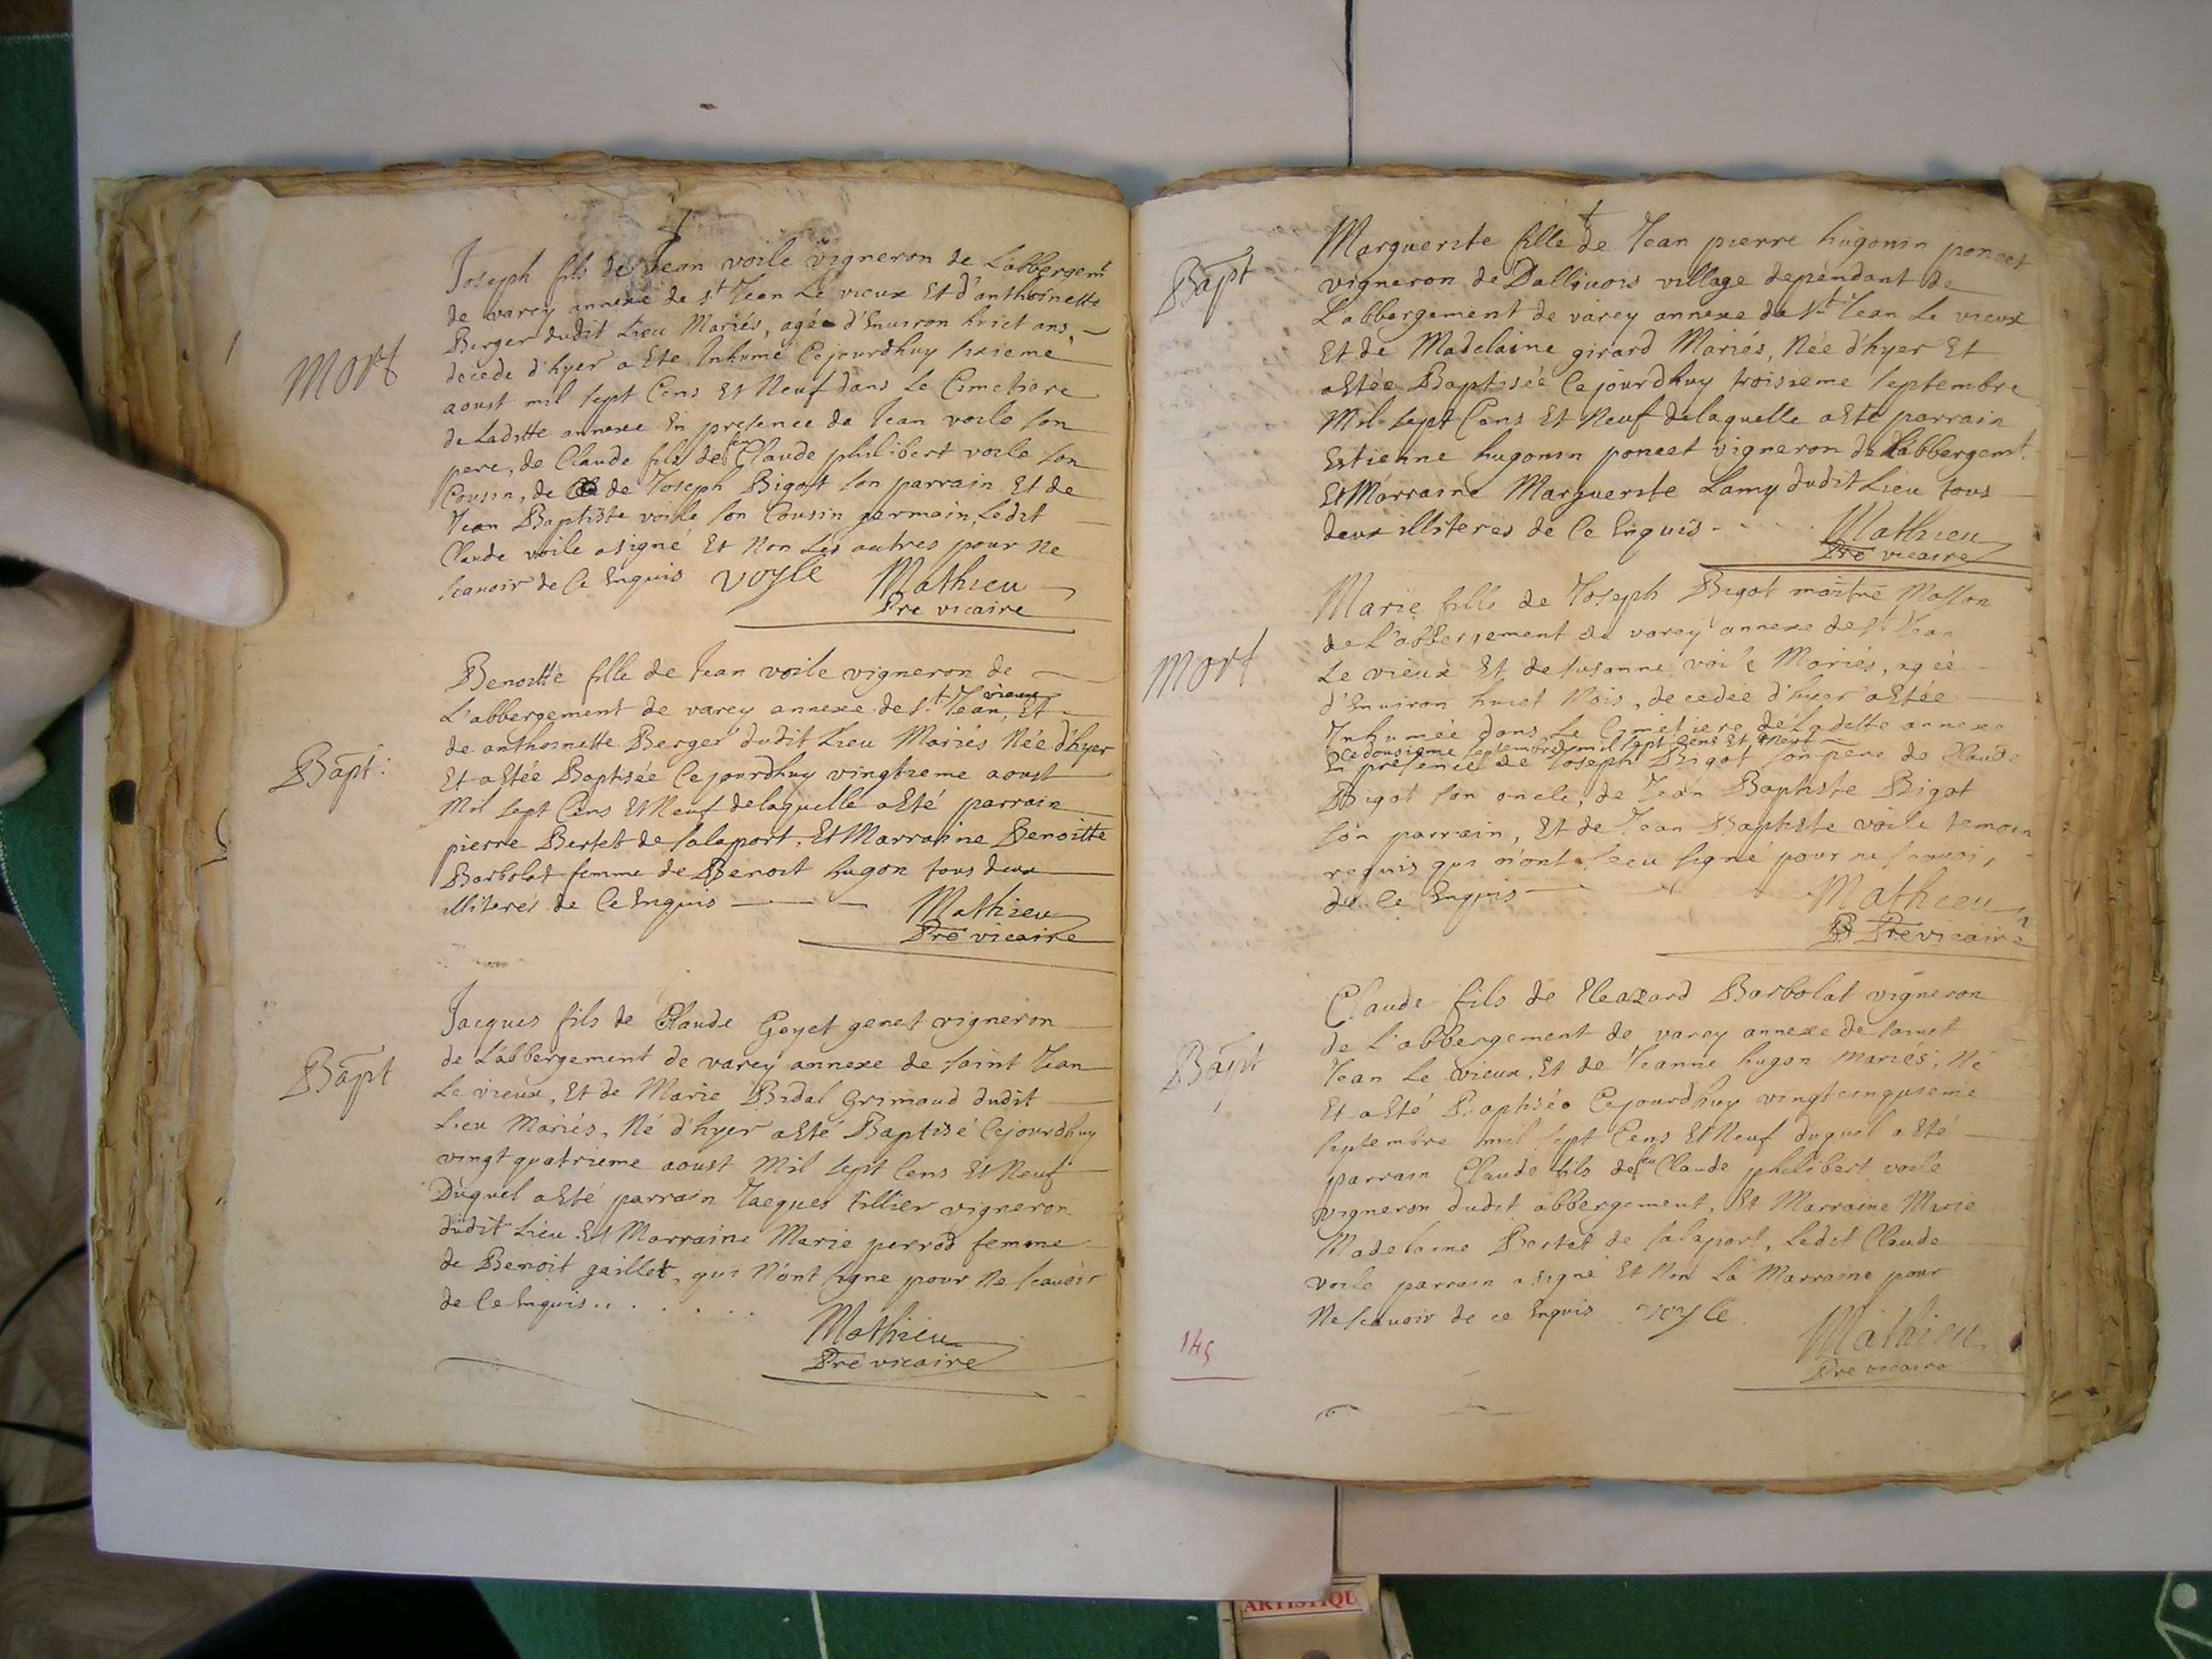 Mort
Joseph fils de Jean voile vigneron de L'abbergemt
de varey annexe de st Jean Le vieux Et d'anthoinette
Berger dudit Lieu Mariés, agée d'Enuiron huict ans,
decede d'hyer a Ete Inhumé Cejourdhuy sixieme
aoust mil sept Cens Et Neuf dans Le Cimetiere
de Laditte annexe En presence de Jean voile son
pere, de Claude fils de feu Claude philibert voile son
Cousin, de de Joseph Bigot son parrain Et de
Jean Baptiste voile son Cousin germain, Ledit
Claude voile a signé Et Non Les autres pour Ne
scauoir de Ce Enquis voyle Mathieu
Pre vicaire
Bapt:
Benoitte fille de Jean voile vigneron de
L'abbergement de varey annexe de st Jean vieux, Et
de anthoinette Berger dudit Lieu Mariés Née d'hyer
Et a Etée Baptisée Cejourdhuy vingtieme aoust
Mil sept Cens Et Neuf delaquelle a Eté parrain
pierre Bertet de salaport, Et Marraine Benoitte
Barbolat femme de Benoit hugon tous deux
illiterés de Ce Enquis Mathieu
Pre vicaire
Bapt
Jacques fils de Claude Goyet genet vigneron
de L'abbergement de varey annexe de saint Jean
Le vieux, Et de Marie Bidal Grimaud dudit
Lieu Mariés, Né d'hyer a Eté Baptisé Cejourdhuy
vingt quatrieme aoust Mil sept Cens Et Neuf
Duquel a Eté parrain Jacques tillier vigneron
dudit Lieu Et Marraine Marie perrod femme
de Benoit gaillet, qui N'ont signe pour Ne scauoir
de Ce Enquis . . . . . . .
Mathieu
Pre vicaire
Bapt
Marguerite fille de Jean pierre hugonin poncet
vigneron de Dalliuois village dependant de
L'abbergement de varey annexe de st Jean Le vieux
Et de Madelaine girard Mariés, Née d'hyer Et
a Etée Baptisée Cejourdhuy troisieme septembre
Mil sept Cens Et Neuf delaquelle a Eté parrain
Estienne hugonin poncet vigneron de L'abbergemt.
Et Marraine Marguerite Lamy dudit Lieu tous
deux illiteres de Ce Enquis Mathieu
Pre vicaire
Mort
Marie fille de Joseph Bigot maitre Masson
de L'abbergement de varey annexe de st Jean
Le vieux Et de susanne voile Mariés, agée
d'Enuiron huict Mois, decedée d'hyer a Etée
Inhumée dans Le Cimetiere de Laditte annexe
Ce dousieme septembre mil sept Cens Et Neuf
En presence de Joseph Bigot son pere de Claude
Bigot son oncle, de Jean Baptiste Bigot
son parrain, Et de Jean Baptiste voile temoin
requis qui n'ont sceu signé pour ne scauoir
de Ce Enquis Mathieu
Pre vicaire
Bapt
Claude fils de Eleazard Barbolat vigneron
de L'abbergement de varey annexe de sainct
Jean Le vieux, Et de Jeanne hugon Mariés, Né
Et a Eté Baptisée Cejourdhuy vingtcinquieme
septembre mil sept Cens Et Neuf duquel a Eté
parrain Claude fils de feu Claude philibert voile
vigneron dudit abbergement, Et Marraine Marie
Madelaine Bertet de salaport, Ledit Claude
voile parrain a signé Et Non La Marraine pour
Ne scauoir de ce Enquis voyle
Mathieu
Pre vicaire
145
ARTISTIQU